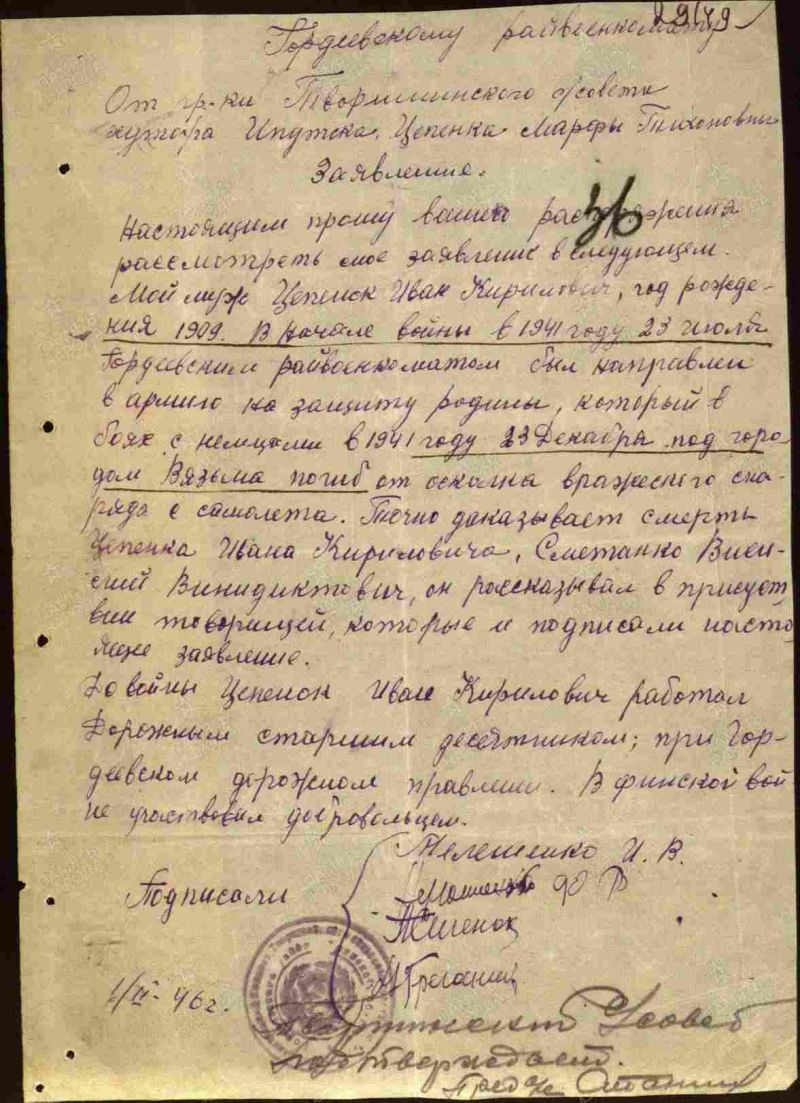 29179
Гордеевскому райвоенкомату
От гр-ки Творишинского с/совета
хутора Ипутска, Цепенка Марфы Тихоновны
Заявление.
36
Настоящим прошу вашего распоряжения
рассмотреть мое заявление в следующем.
Мой муж Цепенок Иван Кирилович, год рожде-
ния 1909. В начале войны в 1941 году 23 июля
Гордеевским райвоенкоматом был направлен
в армию на защиту родины, который в
боях с немцами в 1941 году 23 Декабря под горо-
дом Вязьма погиб от осколка вражеского сна-
ряда с самолета. Точно даказывает смерть
Цепенка Ивана Кириловича, Сметанко
Винидиктович, он рассказывал в присуст
вии товарищей, которые и подписали насто
ящие заявление.
До войны Цепенок Иван Кирилович работал
Дорожным старшим десятником; при Гор-
деевском дорожном правлении. В финской вой
не участвовал добровольцем.
Подписали
Телешенко И. В.
1/III-46г.
с/совет
подтверждает.